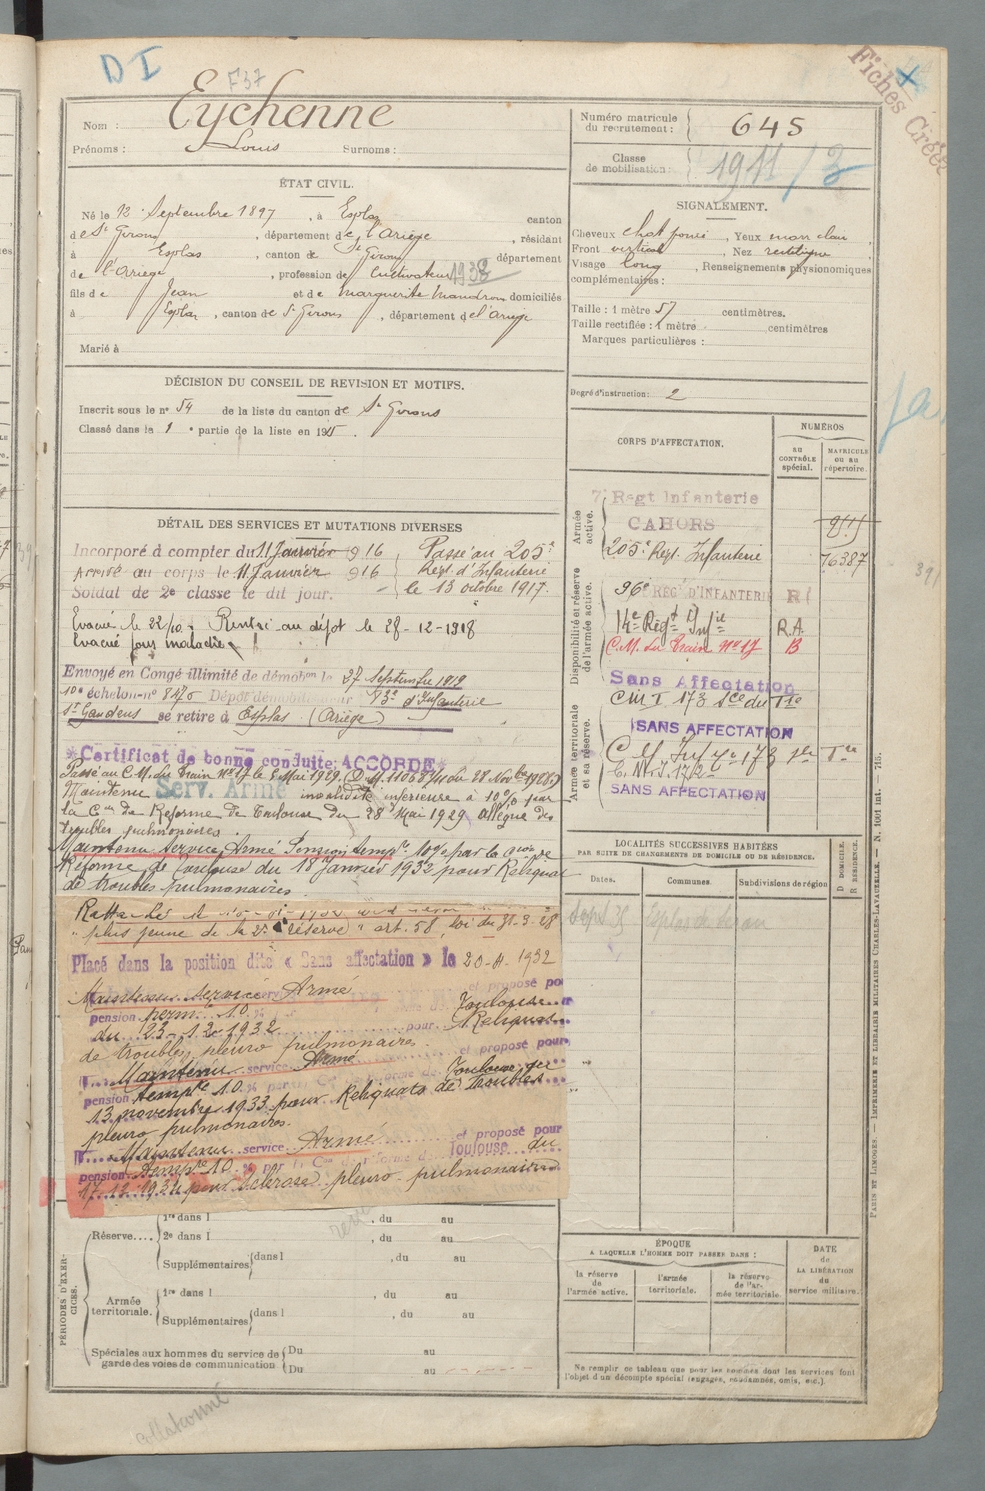 DI
F37
Fiches Créé
Nom : Eychenne
Prénoms : Louis Surnoms :
Numéro matricule du recrutement : 645
Classe de mobilisation : 1911/3
ÉTAT CIVIL.
Né le 12 Septembre 1897, à Esplas canton
de St Girons, département de l'Ariège, résidant
à Esplas, canton de St Girons département
de l'Ariège, profession de Cultivateur 1938
fils de Jean et de Marguerite domiciliés
à Esplas, canton de St Girons, département de l'Ariège
Marié à
SIGNALEMENT.
Cheveux chat foncé, Yeux marron clair,
Front vertical, Nez rectiligne
Visage long, Renseignements physionomiques
complémentaires :
Taille : 1 mètre 57 centimètres.
Taille rectifiée : 1 mètre centimètres
Marques particulières :
DÉCISION DU CONSEIL DE REVISION ET MOTIFS.
Inscrit sous le n° 54 de la liste du canton de St Girons
Classé dans la 1e partie de la liste en 1915.
Degré d'instruction : 2
CORPS D'AFFECTATION.
NUMÉROS
AU CONTRÔLE spécial.
MATRICULE OU AU répertoire.
Armée active.
7e Regt Infanterie
CAHORS
205e Régt. Infanterie 76387
Disponibilité et réserve de l'armée active.
96e REG. D'INFANTERIE R
14e Régt d'Infie R.A.
C.M. du Train N° 17 B
Sans Affectation
Armée territoriale et sa réserve.
SANS AFFECTATION
SANS AFFECTATION
DÉTAIL DES SERVICES ET MUTATIONS DIVERSES
Incorporé à compter du 11 Janvier 1916
Arrivé au corps le 11 Janvier 916
Soldat de 2e classe le dit jour.
Passé au 205e
Régt. d'Infanterie
le 13 octobre 1917.
Evacué le 22/10. Rentré au dépôt le 28-12-1918
Evacué pour maladie
Envoyé en Congé illimité de démobon le 27 Septembre 1919
10e échelon n° 8470 Dépôt démobilisateur 93e d'Infanterie
St Gaudens se retire à Esplas (Ariège)
Certificat de bonne conduite ACCORDÉ
Passé au C.M. du Train N° 17 le 2 Mai 1929.
Maintenu Serv. Armé invalidité inférieure à 10% par
la Con de Réforme de Toulouse du 28 Mai 1929 allègue des
troubles pulmonaires.
Maintenu Service Armé Pension tempre 10% par la Con de
Réforme de Toulouse du 18 Janvier 1932 pour Reliquat
de troubles pulmonaires.
"plus jeune de la 2e réserve" art. 58, loi du 31-3-28
Placé dans la position dite « Sans affectation » le 20-4-1932
Maintenu service Armé et proposé pour
pension perm. 10 % Toulouse
du 23-12-1932 pour Reliquat
de troubles pleuro pulmonaires.
Maintenu service Armé et proposé pour
pension tempre 10 % par la Con de réforme de Toulouse du
13 novembre 1933 pour Reliquats de troubles
pleuro pulmonaires.
Maintenu service Armé et proposé pour
pension tempre 10 % par la Con de réforme de Toulouse du
17-12-1934 pour Sclérose pleuro pulmonaire
LOCALITÉS SUCCESSIVES HABITÉES
PAR SUITE DE CHANGEMENTS DE DOMICILE OU DE RÉSIDENCE.
Dates. Communes. Subdivisions de région D DOMICILE. R RÉSIDENCE.
Sept 35
PÉRIODES D'EXERCICES.
Réserve....
1re dans l , du au
2e dans l , du au
Supplémentaires dans l , du au
Armée territoriale.
1re dans l , du au
Supplémentaires dans l , du au
Spéciales aux hommes du service de garde des voies de communication
Du au
Du au
ÉPOQUE
A LAQUELLE L'HOMME DOIT PASSER DANS :
la réserve de l'armée active.
l'armée territoriale.
la réserve de l'armée territoriale.
DATE de LA LIBÉRATION du service militaire.
Ne remplir ce tableau que pour les hommes dont les services font
l'objet d'un décompte spécial (engagés, condamnés, omis, etc.).
PARIS ET LIMOGES. — IMPRIMERIE ET LIBRAIRIE MILITAIRES CHARLES-LAVAUZELLE. — N. 1001 int. — 715.